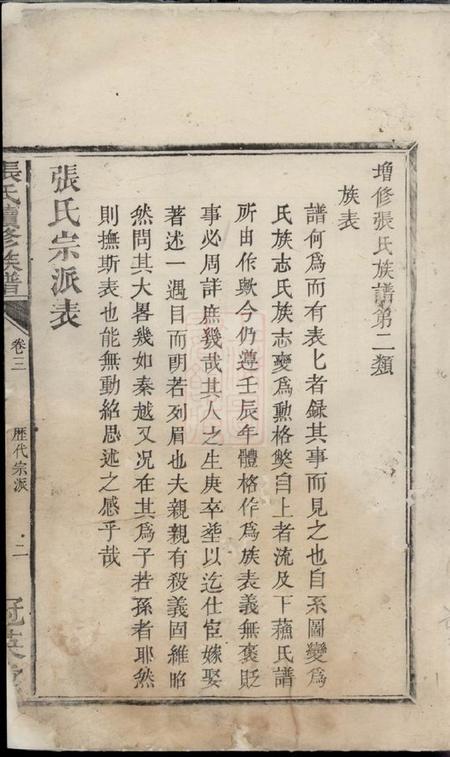 增修張氏族譜第二類
族表
譜何為而有表匕者録其事而見之也自系圖變為
氏族志氏族志變為勲格獘自上者流及下蘓氏譜
所由作歟今仍遵壬辰年體格作為族表義無褒貶
事必周詳庶幾哉其人之生庚卒塟以迄仕宦嫁娶
著述一遇目而朗若列眉也夫親親有殺義固維昭
然問其大畧幾如秦越又况在其為子若孫者耶然
則撫斯表也能無動紹思述之感乎哉
張氏宗派表
張氏續修族譜
卷三
歴代宗派
二
冠英堂